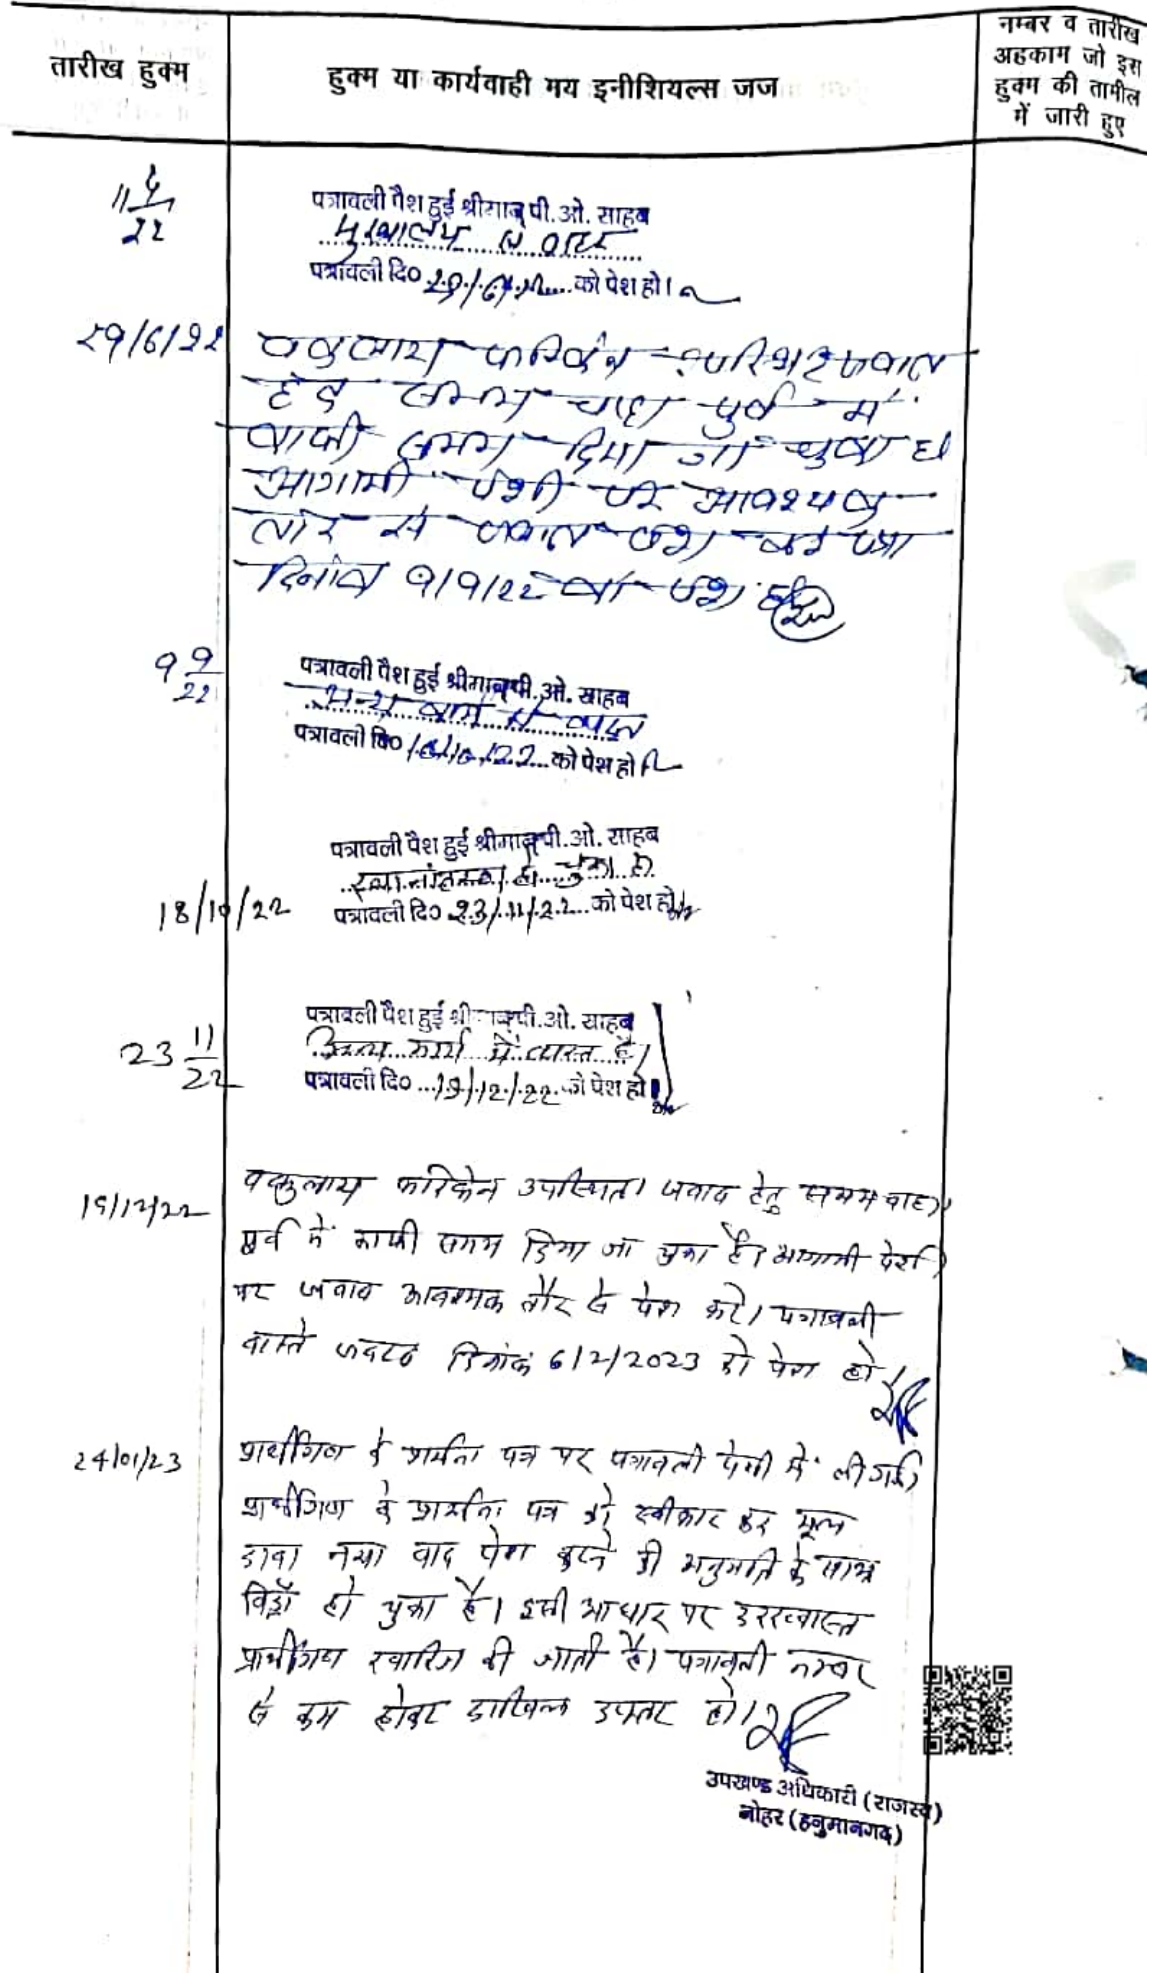 तारीख हुक्म
हुक्म या कार्यवाही मय इनीशियल्स जज
नम्बर व तारीख
अहकाम जो इस
हुक्म की तामील
में जारी हुए
22
पत्रावली पैश हुई श्रीमान् पी.ओ. साहब
मुख्यालय से बाहर
पत्रावली दि० 29/6/22 को पेश हो।
29/6/22
वकुलाय फरिकेन उपस्थित जवाब
हेतु समय चाहा पूर्व में
काफी समय दिया जा चुका है।
आगामी पेशी पर आवश्यक
तौर से जवाब पेश करे पत्रा
दिनांक 9/9/22 को पेश हो
9 9/22
पत्रावली पैश हुई श्रीमान् पी.ओ. साहब
अन्य कार्य में व्यस्त
पत्रावली दि० 18/10/22 को पेश हो
पत्रावली पैश हुई श्रीमान् पी.ओ. साहब
स्थानांतरण हो चुका है
18/10/22 पत्रावली दि० 23/11/22 को पेश हो
पत्रावली पैश हुई श्रीमान् पी.ओ. साहब
23 11/22 अन्य कार्य में व्यस्त है।
पत्रावली दि० 19/12/22 को पेश हो
19/12/22
वकुलाय फरिकेन उपस्थित। जवाब हेतु समय चाहा।
पूर्व में काफी समय दिया जा चुका है। आगामी पेशी
पर जवाब आवश्यक तौर से पेश करे। पत्रावली
वास्ते जवाब दिनांक 6/2/2023 को पेश हो।
24/01/23
प्रार्थीगण के प्रार्थना पत्र पर पत्रावली पेशी में ली गई।
प्रार्थीगण के प्रार्थना पत्र को स्वीकार कर मूल
दावा नया वाद पेश करने की अनुमति के साथ
विड्रॉ हो चुका है। इसी आधार पर दरख्वास्त
प्रार्थीगण खारिज की जाती है। पत्रावली नम्बर
से कम होकर दाखिल दफ्तर हो।
उपखण्ड अधिकारी (राजस्व)
नोहर (हनुमानगढ़)